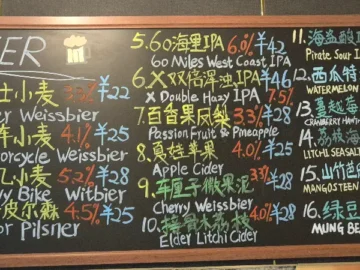 ER
士小麦 3.2% ¥22
er Weissbier
车小麦 4.1% ¥25
orcycle Weissbier
几小麦 5.2% ¥28
vy Bike Witbier
皮尔森 4.5% ¥25
or Pilsner
5.60海里IPA 6.0% ¥42
60 Miles West Coast IPA
6.XX倍浑浊IPA ¥46
X Double Hazy IPA 7.5%
7.百香果凤梨 3.3% ¥28
Passion Fruit & Pineapple
8.夏娃苹果 4.0% ¥25
Apple Cider
9.车厘子微果泥 3.3% ¥28
Cherry Weissbier
10.接骨木荔枝 4.0% ¥28
Elder Litchi Cider
11.海盗酸
Pirate Sour I
12.西瓜特
WATERMELON
13.蔓越莓
CRANBERRY HAWTH
14.荔枝
LITCHI SEA SALT
15.山竹
MANGOSTEEN
16.绿豆
MUNG BE